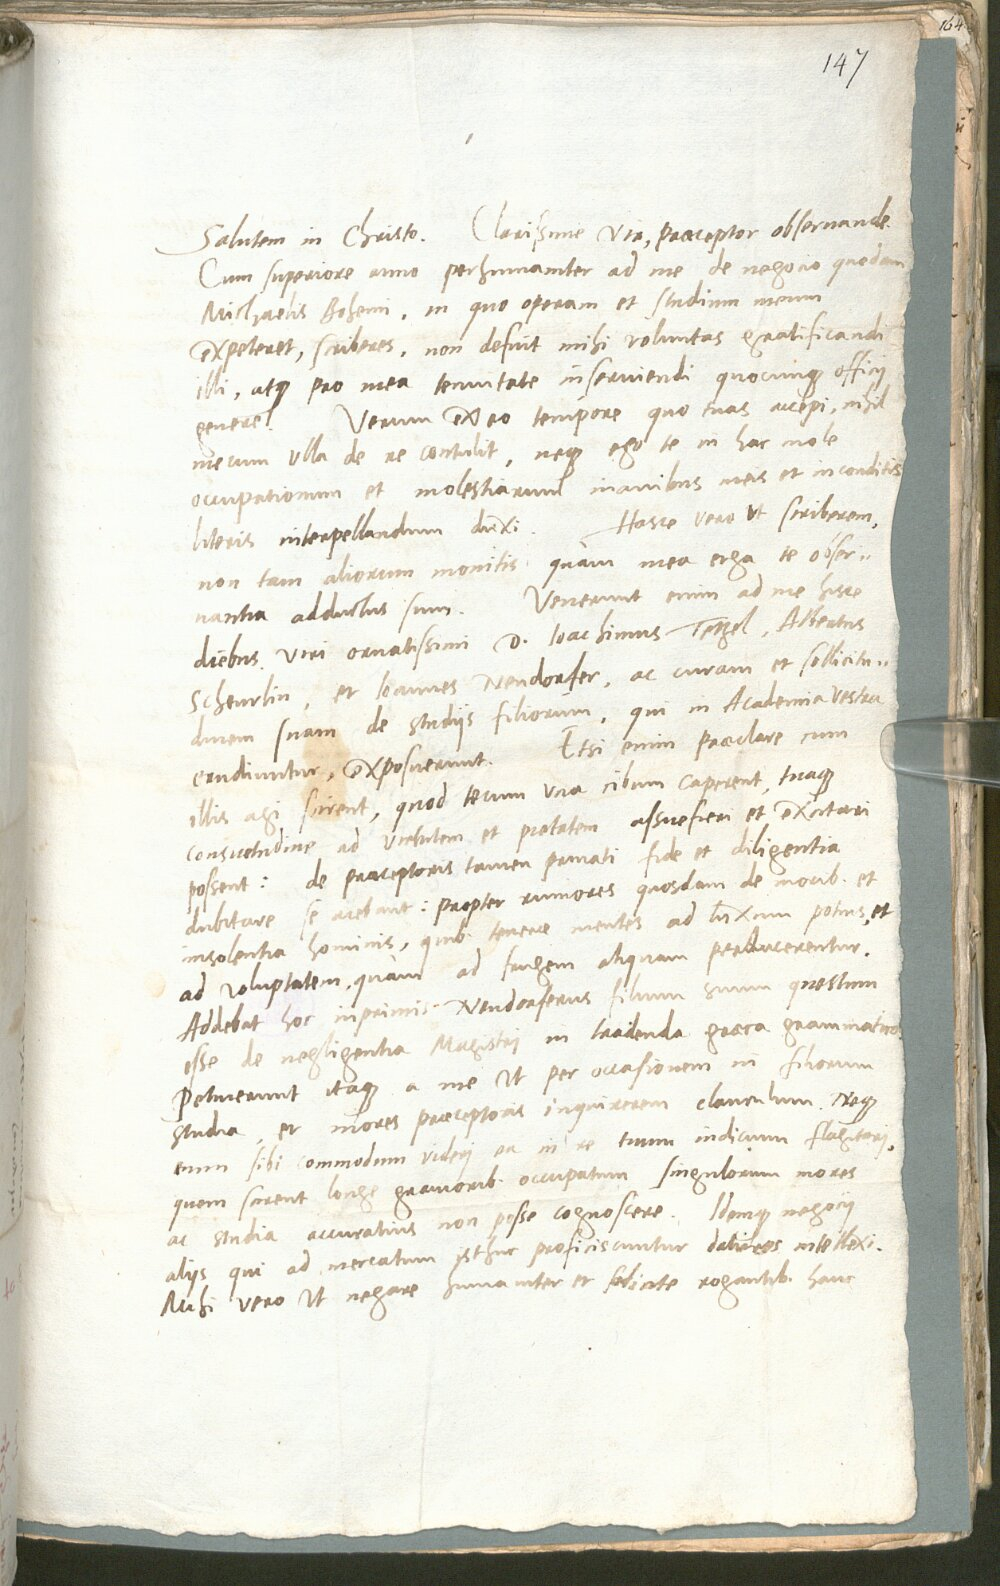 164
147
Salutem in Christo. Clarissime Vir, praeceptor obseruande.
Cum superiore anno perhumaniter ad me de negocio quodam
Michaelis Bohemi, in quo operam et studium meum
expeteret, scriberes, non defuit mihi voluntas gratificandi
illi, atq pro mea tenuitate inseruiendi quocunq officij
genere. Verum ex eo tempore quo tuas accepi, nihil
mecum vlla de re contulit, neq ego te in hac mole
occupationum et molestiarum inanibus meis et inconditis
literis interpellandum duxi. Hasce vero vt scriberem,
non tam aliorum monitis quàm mea erga te obser-
uantia adductus sum. Venerunt enim ad me hisce
diebus viri ornatissimi D. Ioachimus Tetzel, Albertus
Scheurlin, et Ioannes Neudorfer, ac curam et sollicitu-
dinem suam de studijs filiorum, qui in Academia vestra
erudiuntur, exposuerunt. Etsi enim praeclare cum
illis agi scirent, quod tecum vna cibum caperent, tuaq
consuetudine ad virtutem et pietatem assuefieri et excitari
possent: de praeceptoris tamen priuati fide et diligentia
dubitare se aiebant: propter rumores quosdam de morib. et
insolentia hominis, quib. tenerae mentes ad luxum potius, et
ad voluptatem, quàm ad frugem aliquam perducerentur.
Addebat hoc inprimis Neudorferus filium suum questum
esse de negligentia Magistri in tradenda graeca grammatica
Petiuerunt itaq a me vt per occasionem in filiorum
studia, et mores praeceptoris inquirerem clanculum. Neq
enim sibi commodum videri ea in re tuum indicium flagitari,
quem scirent longe grauiorib. occupatum singulorum mores
ac studia accuratius non posse cognoscere. Idemq negocij
alijs qui ad mercatum isthuc proficiscuntur intellexi.
Mihi vero vt negare humaniter et rogantib. hanc